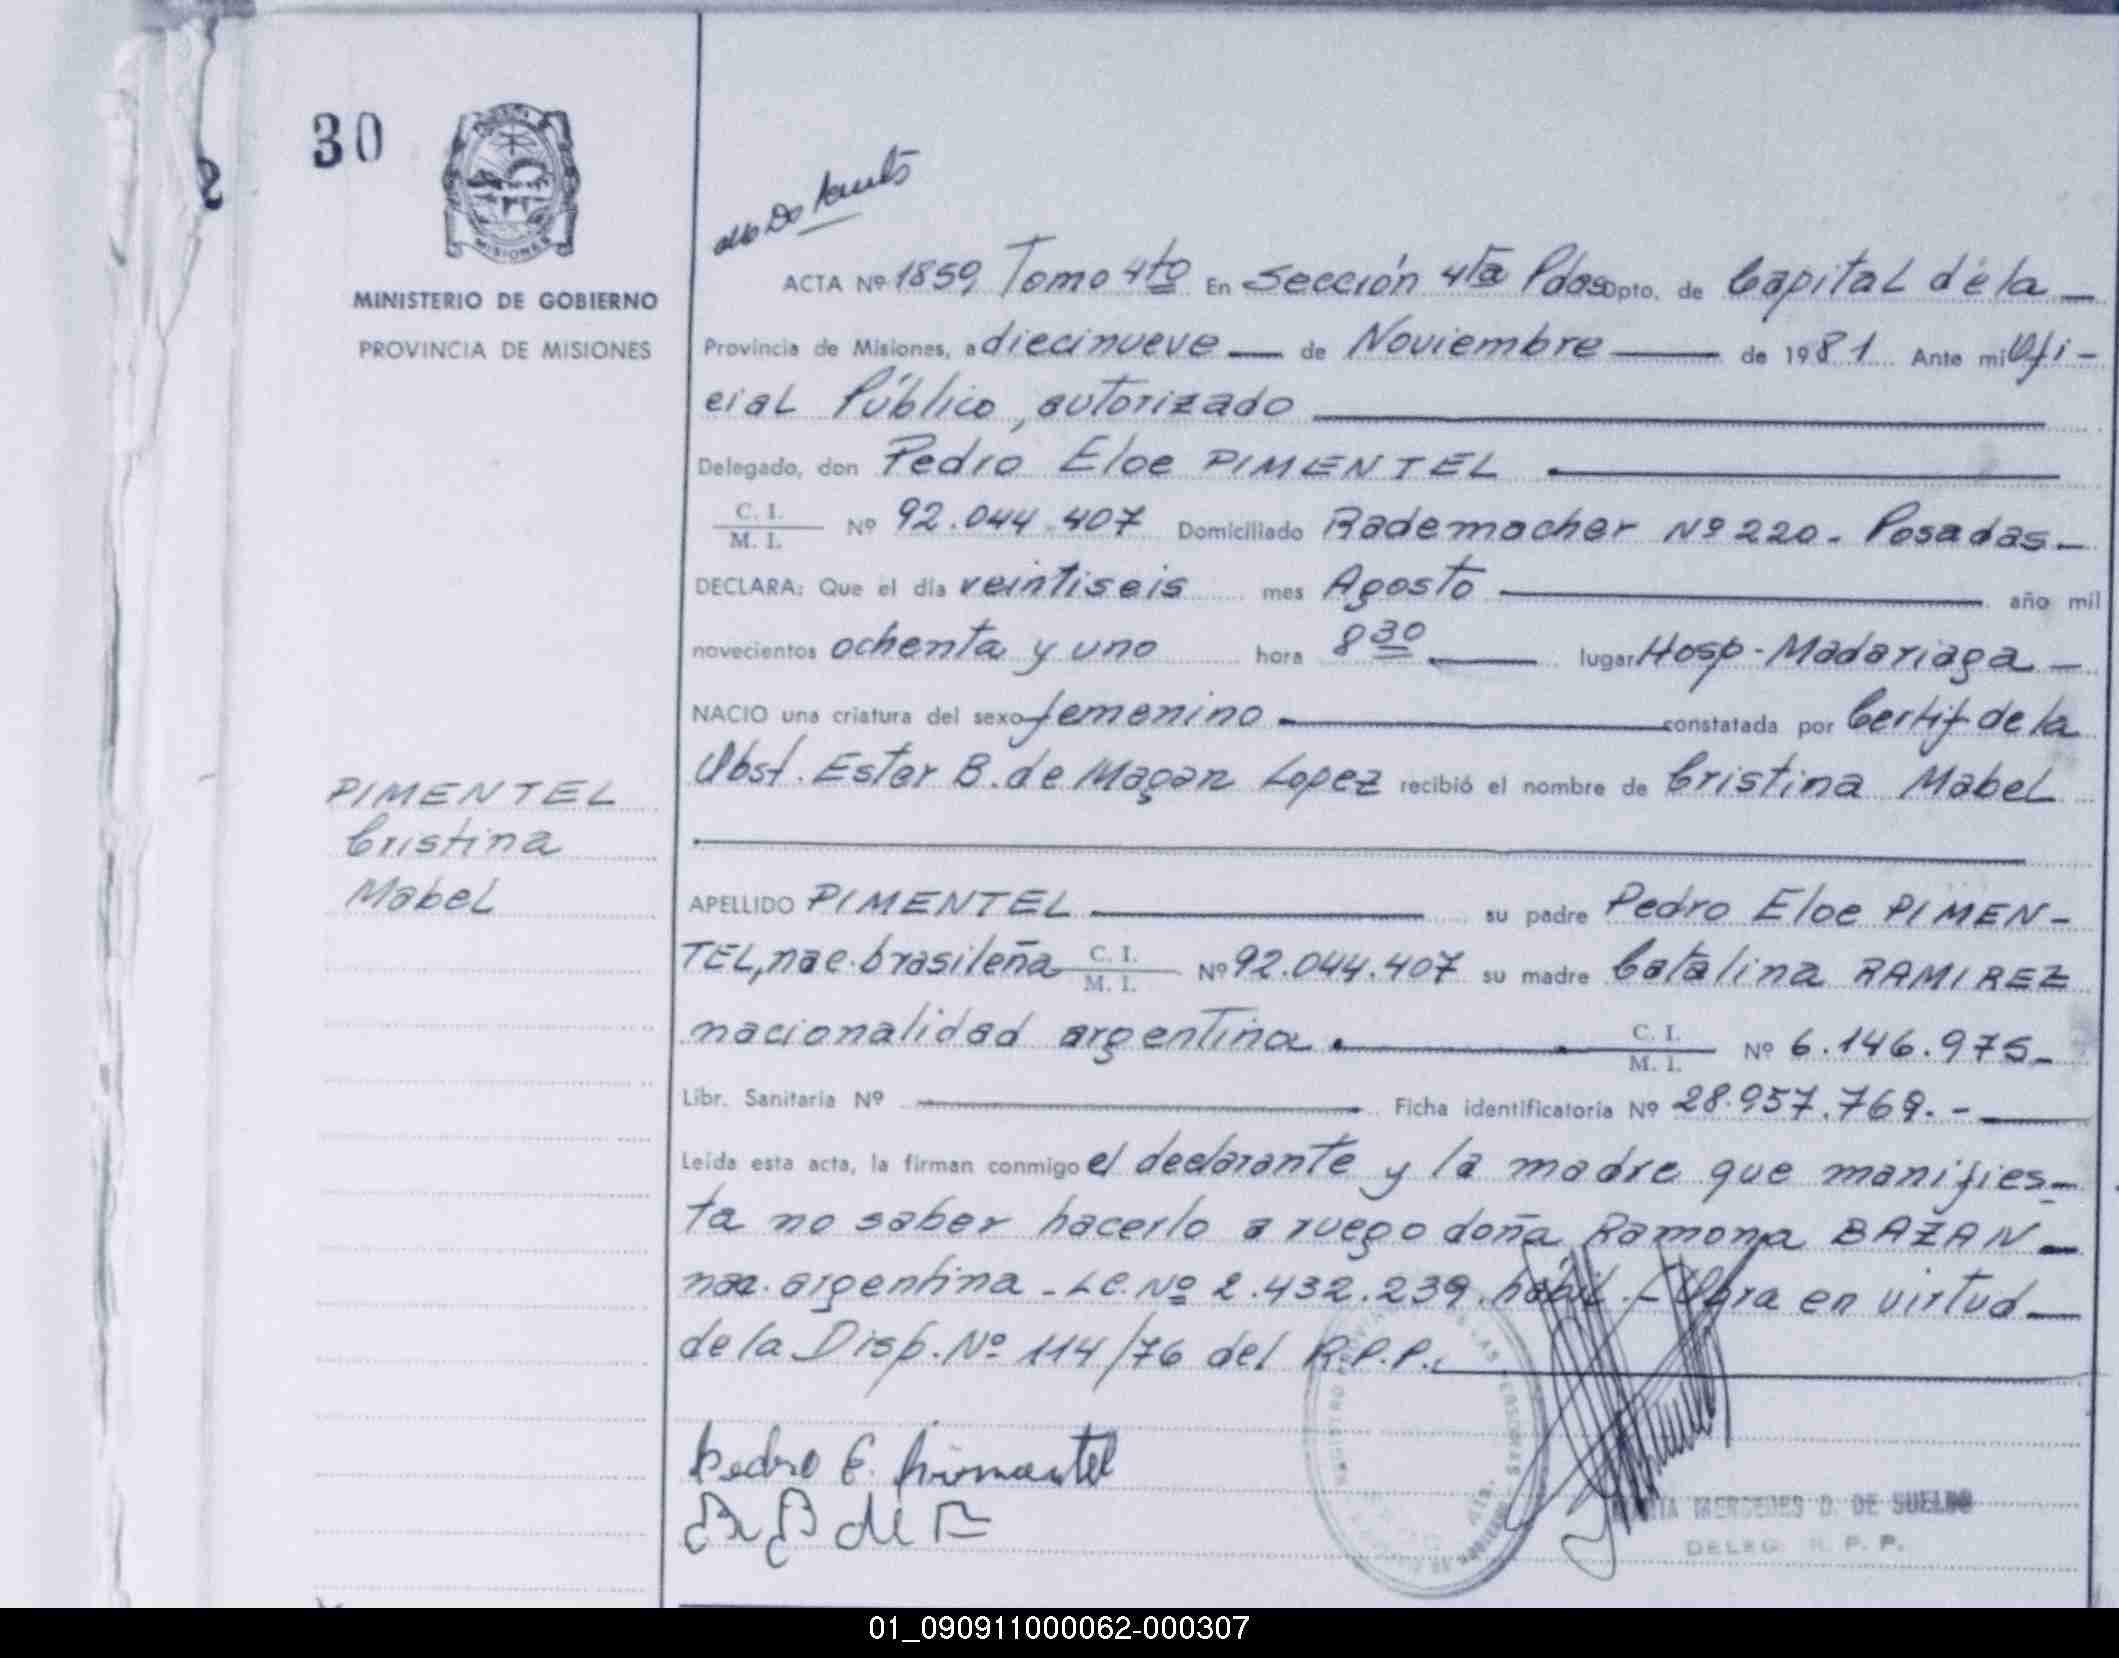 30
MISIONES
MINISTERIO DE GOBIERNO
PROVINCIA DE MISIONES
PIMENTEL
Cristina
Mabel
ACTA Nº 1859, Tomo 4to En Sección 4ta Pdas Dpto. de Capital de la
Provincia de Misiones, a diecinueve de Noviembre de 1981. Ante mi Ofi-
cial Público, autorizado
Delegado, don Pedro Eloe PIMENTEL
C. I.
M. I. Nº 92.044.407 Domiciliado Rademacher Nº 220. Posadas
DECLARA: Que el día veintiseis mes Agosto año mil
novecientos ochenta y uno hora 8 30 lugar Hosp. Madariaga
NACIO una criatura del sexo femenino constatada por Certif de la
Obst. Ester B. de Magan Lopez recibió el nombre de Cristina Mabel
APELLIDO PIMENTEL su padre Pedro Eloe PIMEN-
TEL, nac. brasileña C. I. M. I. Nº 92.044.407 su madre Catalina RAMIREZ
nacionalidad argentina. C. I. M. I. Nº 6.146.975.
Libr. Sanitaria Nº Ficha identificatoria Nº 28.957.769.-
Leída esta acta, la firman conmigo el declarante y la madre que manifies-
ta no saber hacerlo a ruego doña Ramona BAZAN
nac. argentina - LC. Nº 2.432.239. hábil.- Obra en virtud
de la Disp. Nº 114/76 del R.P.P..
Pedro E. Pimentel
MERCEDES D. DE SUELDO
DELEG. R. P. P.
01_090911000062-000307